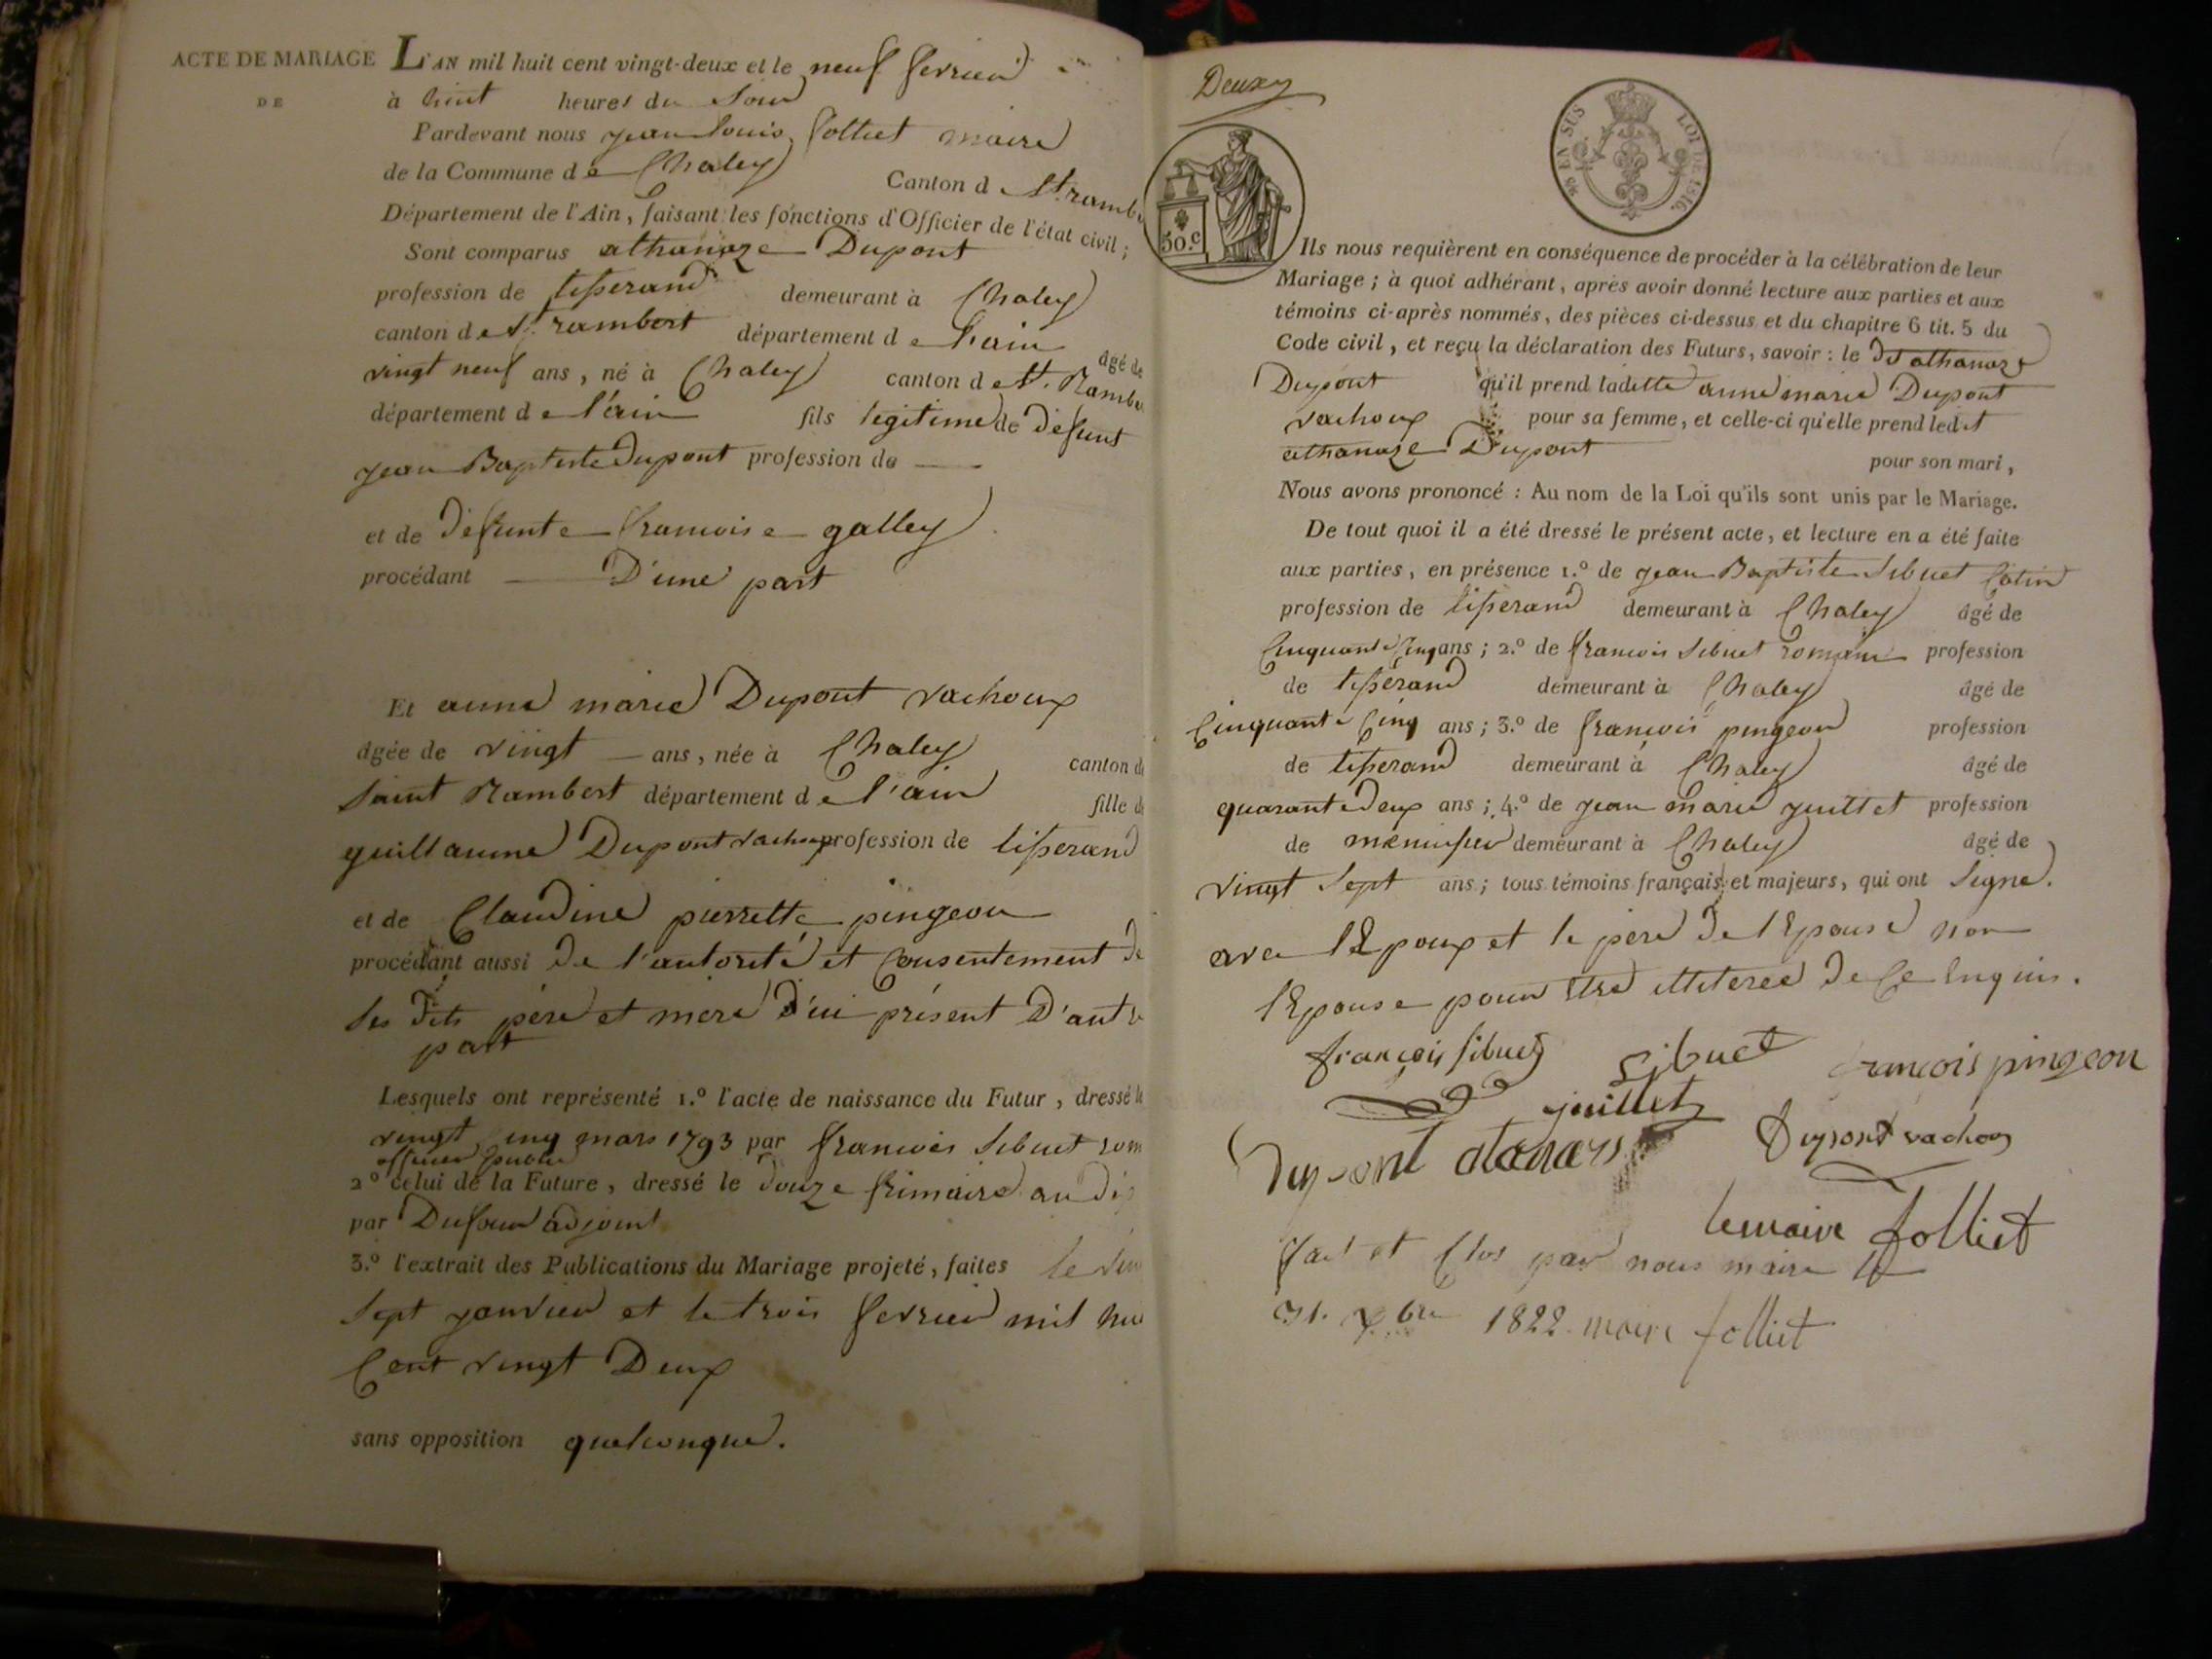 ACTE DE MARIAGE
DE
L'AN mil huit cent vingt-deux et le neuf fevrier
à huit heures du Soir
Pardevant nous jean louis folliet maire
de la Commune de Chaley Canton de St. ramb
Département de l'Ain, faisant les fonctions d'Officier de l'état civil;
Sont comparus athanaze Dupont
profession de tisserand demeurant à Chaley
canton de St. rambert département de l'ain âgé de
vingt neuf ans, né à Chaley canton de St. Rambe
département de l'ain fils légitime de défunt
jean Baptiste Dupont profession de
et de défunte francoise galley
procédant D'une part
Et anne marie Dupont vachoux
âgée de vingt ans, née à Chaley canton de
Saint Rambert département de l'ain fille de
guillaume Dupont vachoux profession de tisserand
et de Claudine pierrette pingeon
procédant aussi de l'autorité et Consentement de
Ses dits père et mère d'ici présent D'autre
part
Lesquels ont représenté 1.º l'acte de naissance du Futur, dressé le
vingt cinq mars 1793 par francois Sibuet rom
officier public
2º celui de la Future, dressé le douze frimaire an dix
par Dufour adjoint
3.º l'extrait des Publications du Mariage projeté, faites le vin
Sept janvier et le trois fevrier mil hui
Cent vingt Deux
sans opposition quelconque.
Deux
50.c
96 EN SUS LOI DE 1816.
Ils nous requièrent en conséquence de procéder à la célébration de leur
Mariage; à quoi adhérant, après avoir donné lecture aux parties et aux
témoins ci-après nommés, des pièces ci-dessus et du chapitre 6 tit. 5 du
Code civil, et reçu la déclaration des Futurs, savoir: le dt athanaze
Dupont qu'il prend ladette anne marie Dupont
vachoux pour sa femme, et celle-ci qu'elle prend ledit
athanaze Dupont pour son mari,
Nous avons prononcé: Au nom de la Loi qu'ils sont unis par le Mariage.
De tout quoi il a été dressé le présent acte, et lecture en a été faite
aux parties, en présence 1.º de jean Baptiste Sibuet Catin
profession de tisserand demeurant à Chaley âgé de
Cinquante Cinq ans; 2.º de francois Sibuet romain profession
de tisserand demeurant à Chaley âgé de
Cinquante Cinq ans; 3.º de francois pingeon profession
de tisserand demeurant à Chaley âgé de
quarante deux ans; 4.º de jean marie juillet profession
de menuisier demeurant à Chaley âgé de
vingt Sept ans; tous témoins français et majeurs, qui ont Signé.
avec l'Epoux et le père de l'Epouse non
l'Epouse pour Etre illiterée de Ce Enquis.
françois sibuet Sibuet francois pingeon
juillet
Dupont Dupont vachoux
lemaire folliet
fait et Clos par nous maire le
31. Xbre 1822. maire folliet